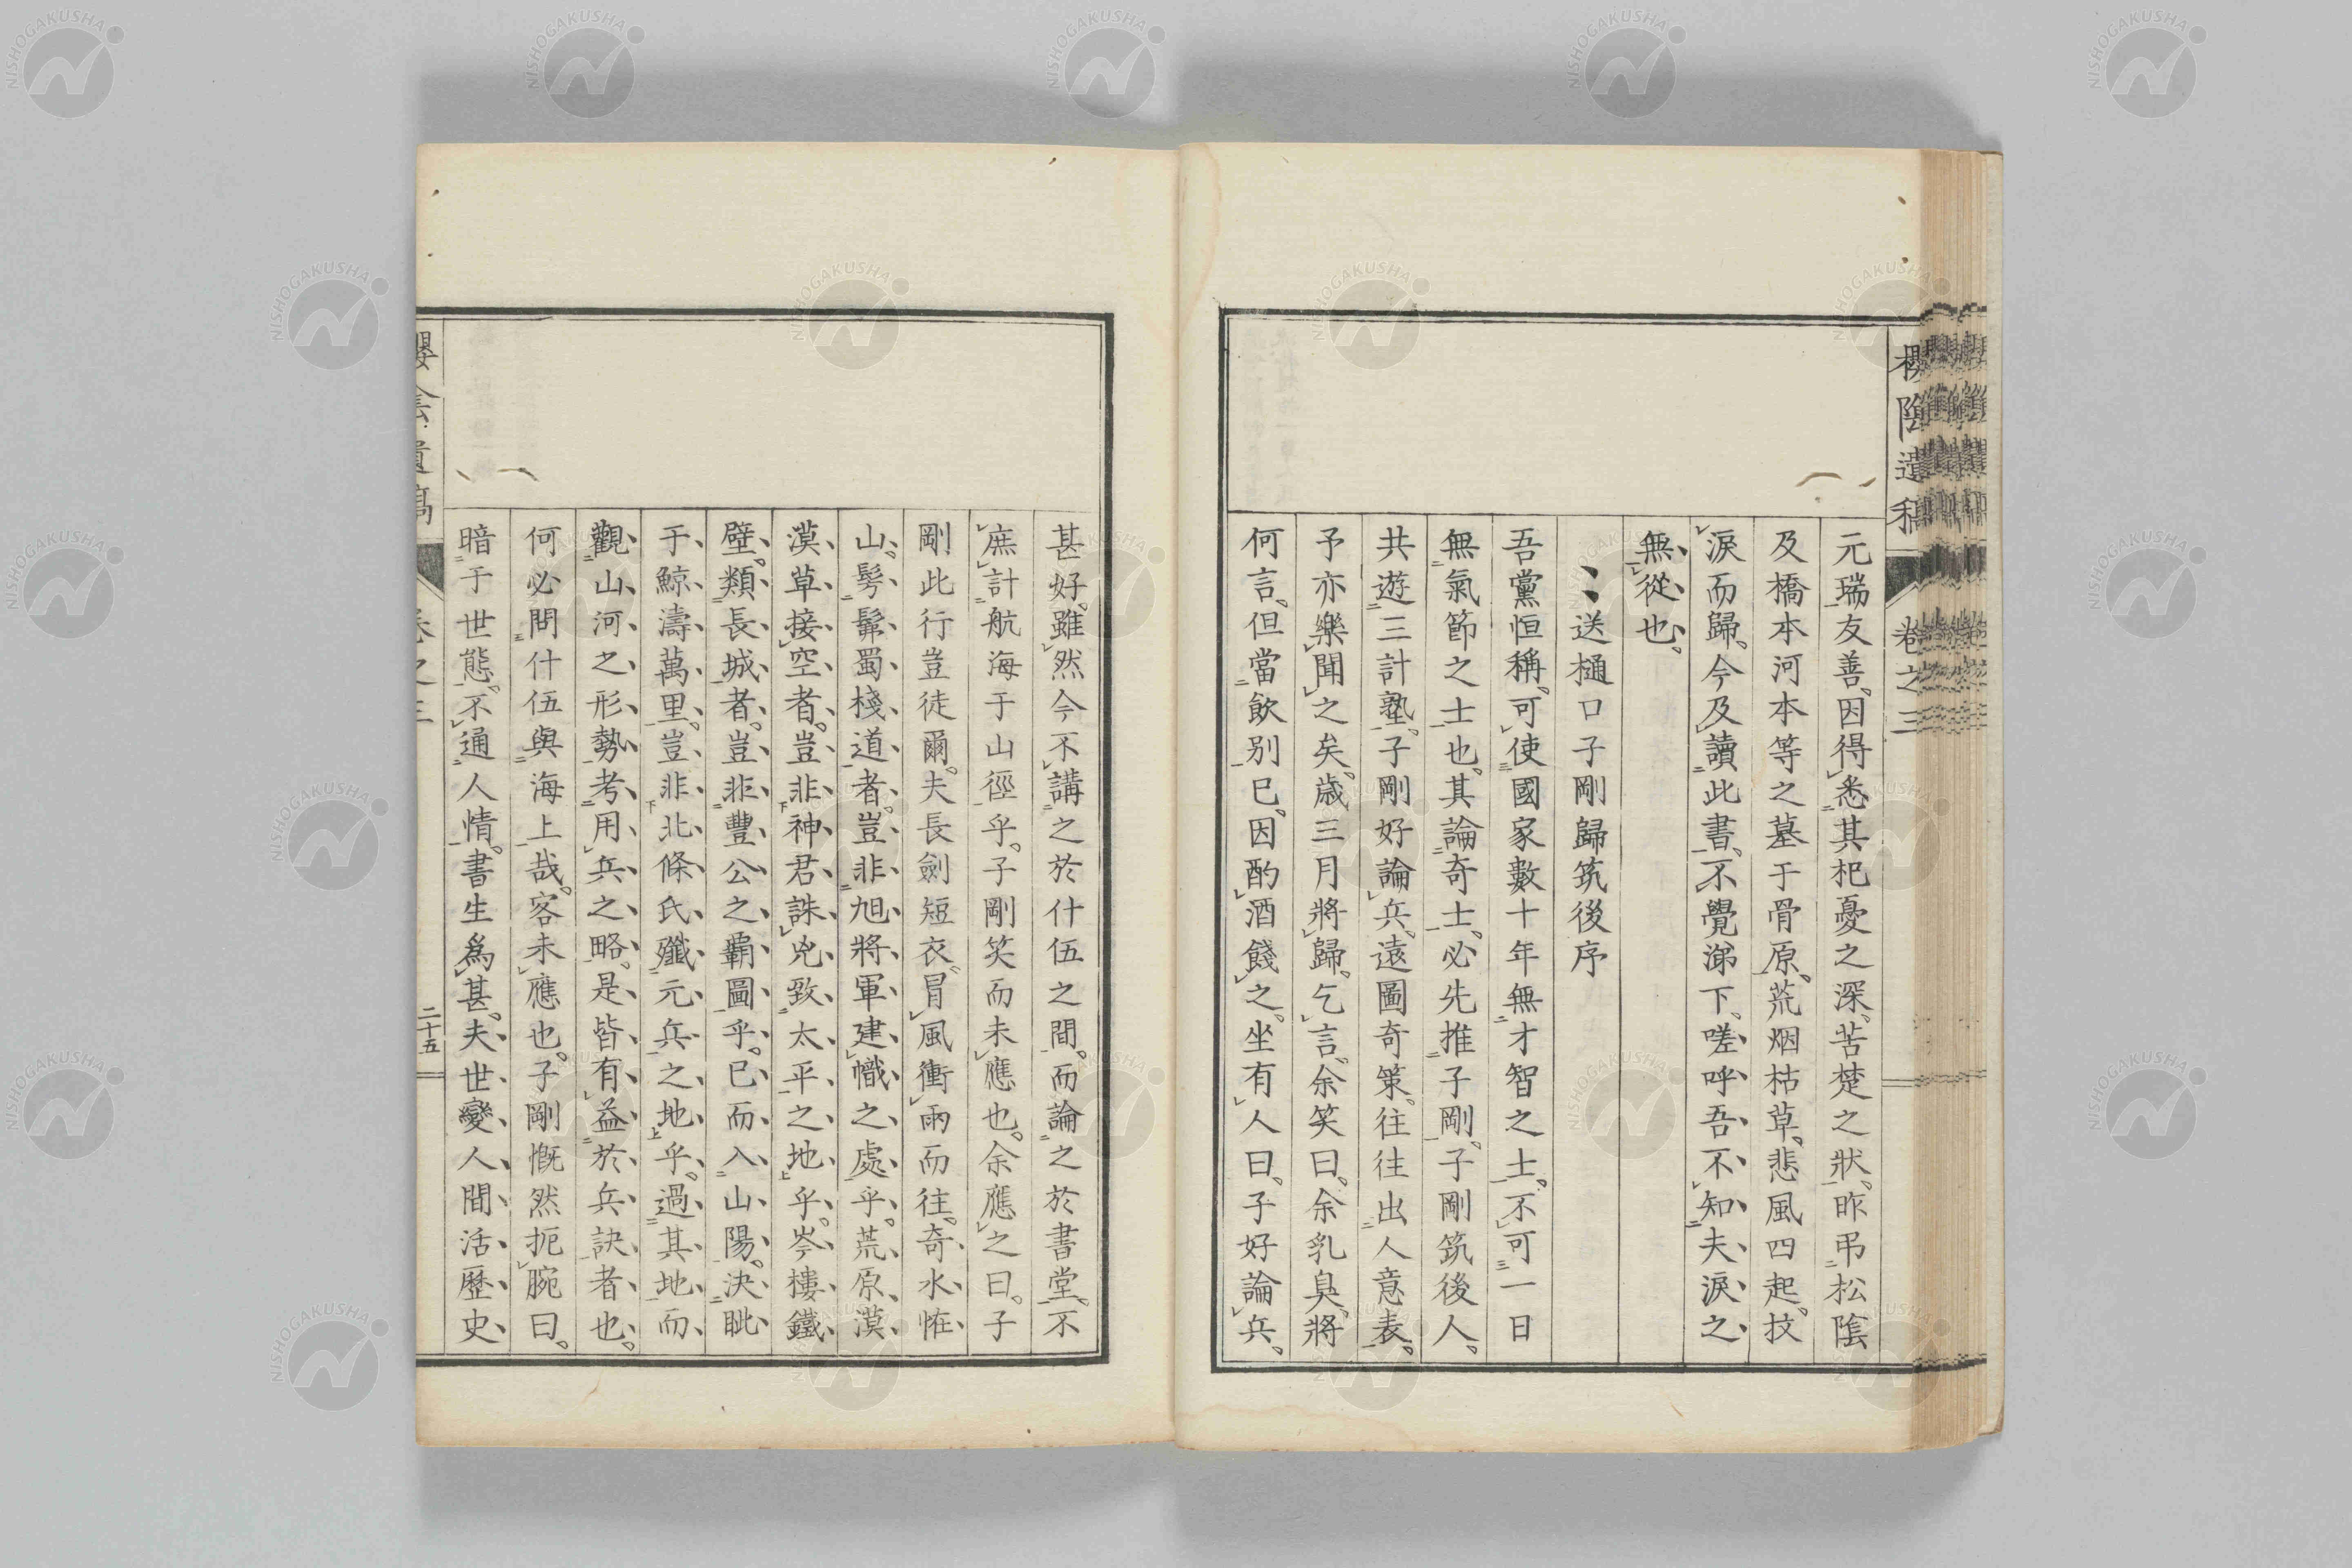 櫻陰遺稿 卷之三
元瑞友善。因得悉其杞憂之深。苦楚之狀。昨弔松陰
及橋本河本等之墓于骨原。荒烟枯草。悲風四起。抆
淚而歸。今及讀此書。不覺涕下。嗟呼吾不知夫淚之
無從也。
送樋口子剛歸筑後序
吾黨恒稱。可使國家數十年無才智之士。不可一日
無氣節之士也。其論奇士。必先推子剛。子剛筑後人。
共遊三計塾。子剛好論兵。遠圖奇策。往往出人意表。
予亦樂聞之矣。歲三月將歸。乞言。余笑曰。余乳臭。將
何言。但當飲別已。因酌酒餞之。坐有人曰。子好論兵。
甚好。雖然今不講之於什伍之間。而論之於書堂。不
庶計航海于山徑乎。子剛笑而未應也。余應之曰。子
剛此行豈徒爾。夫長劍短衣。冒風衝雨而往。奇水恠
山。髣髴蜀棧道者。豈非旭將軍建幟之處乎。荒原漠
漠草接空者。豈非神君誅兇致太平之地乎。岑樓鐵
壁。類長城者。豈非豐公之霸圖乎。已而入山陽。決眦
于鯨濤萬里。豈非北條氏殲元兵之地乎。過其地而
觀山河之形勢。考用兵之略。是皆有益於兵訣者也。
何必問什伍與海上哉。客未應也。子剛慨然扼腕曰。
暗于世態。不通人情。書生爲甚。夫世變人間活歷史
二十五